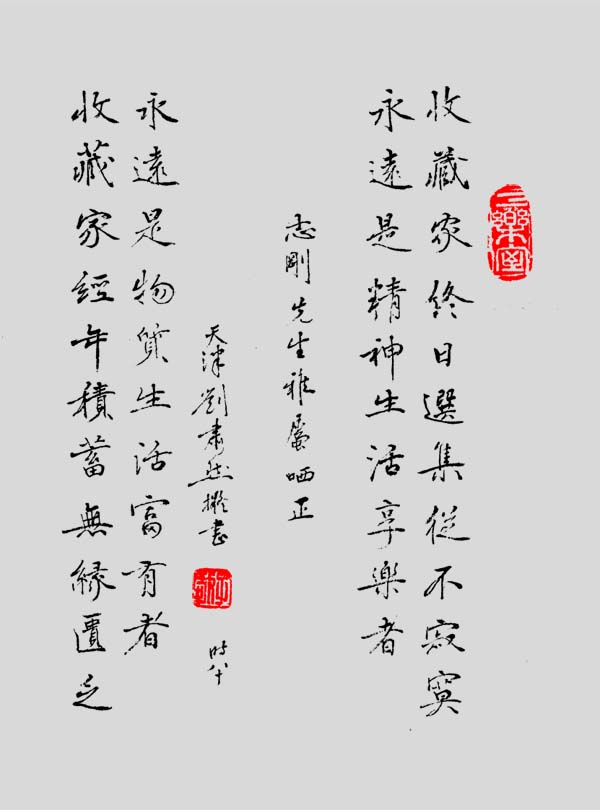 三樂室
收藏家終日選集從不寂寞
永遠是精神生活享樂者
志剛先生雅屬哂正
收藏家經年積蓄無緣匱乏
永遠是物質生活富有者
天津劉肅然撰書
時八十